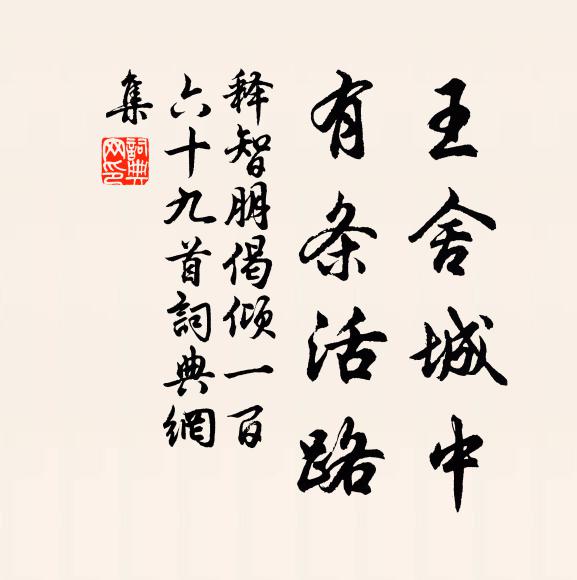 王舍城中
有条活路
释智朋偈倾一百
六十九首詞典網
集
詞典网印